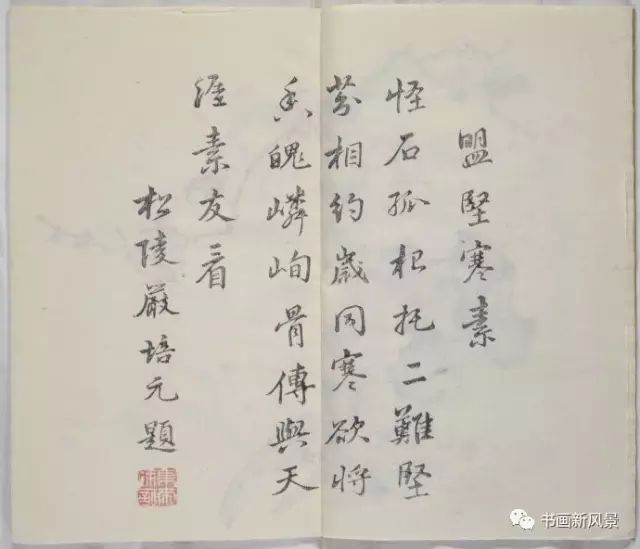 盟堅寒素
怪石孤根托二難堅
芬相約歲同寒欲將
香魄嶙峋骨傳與天
涯素友看
松陵嚴培元題
书画新风景